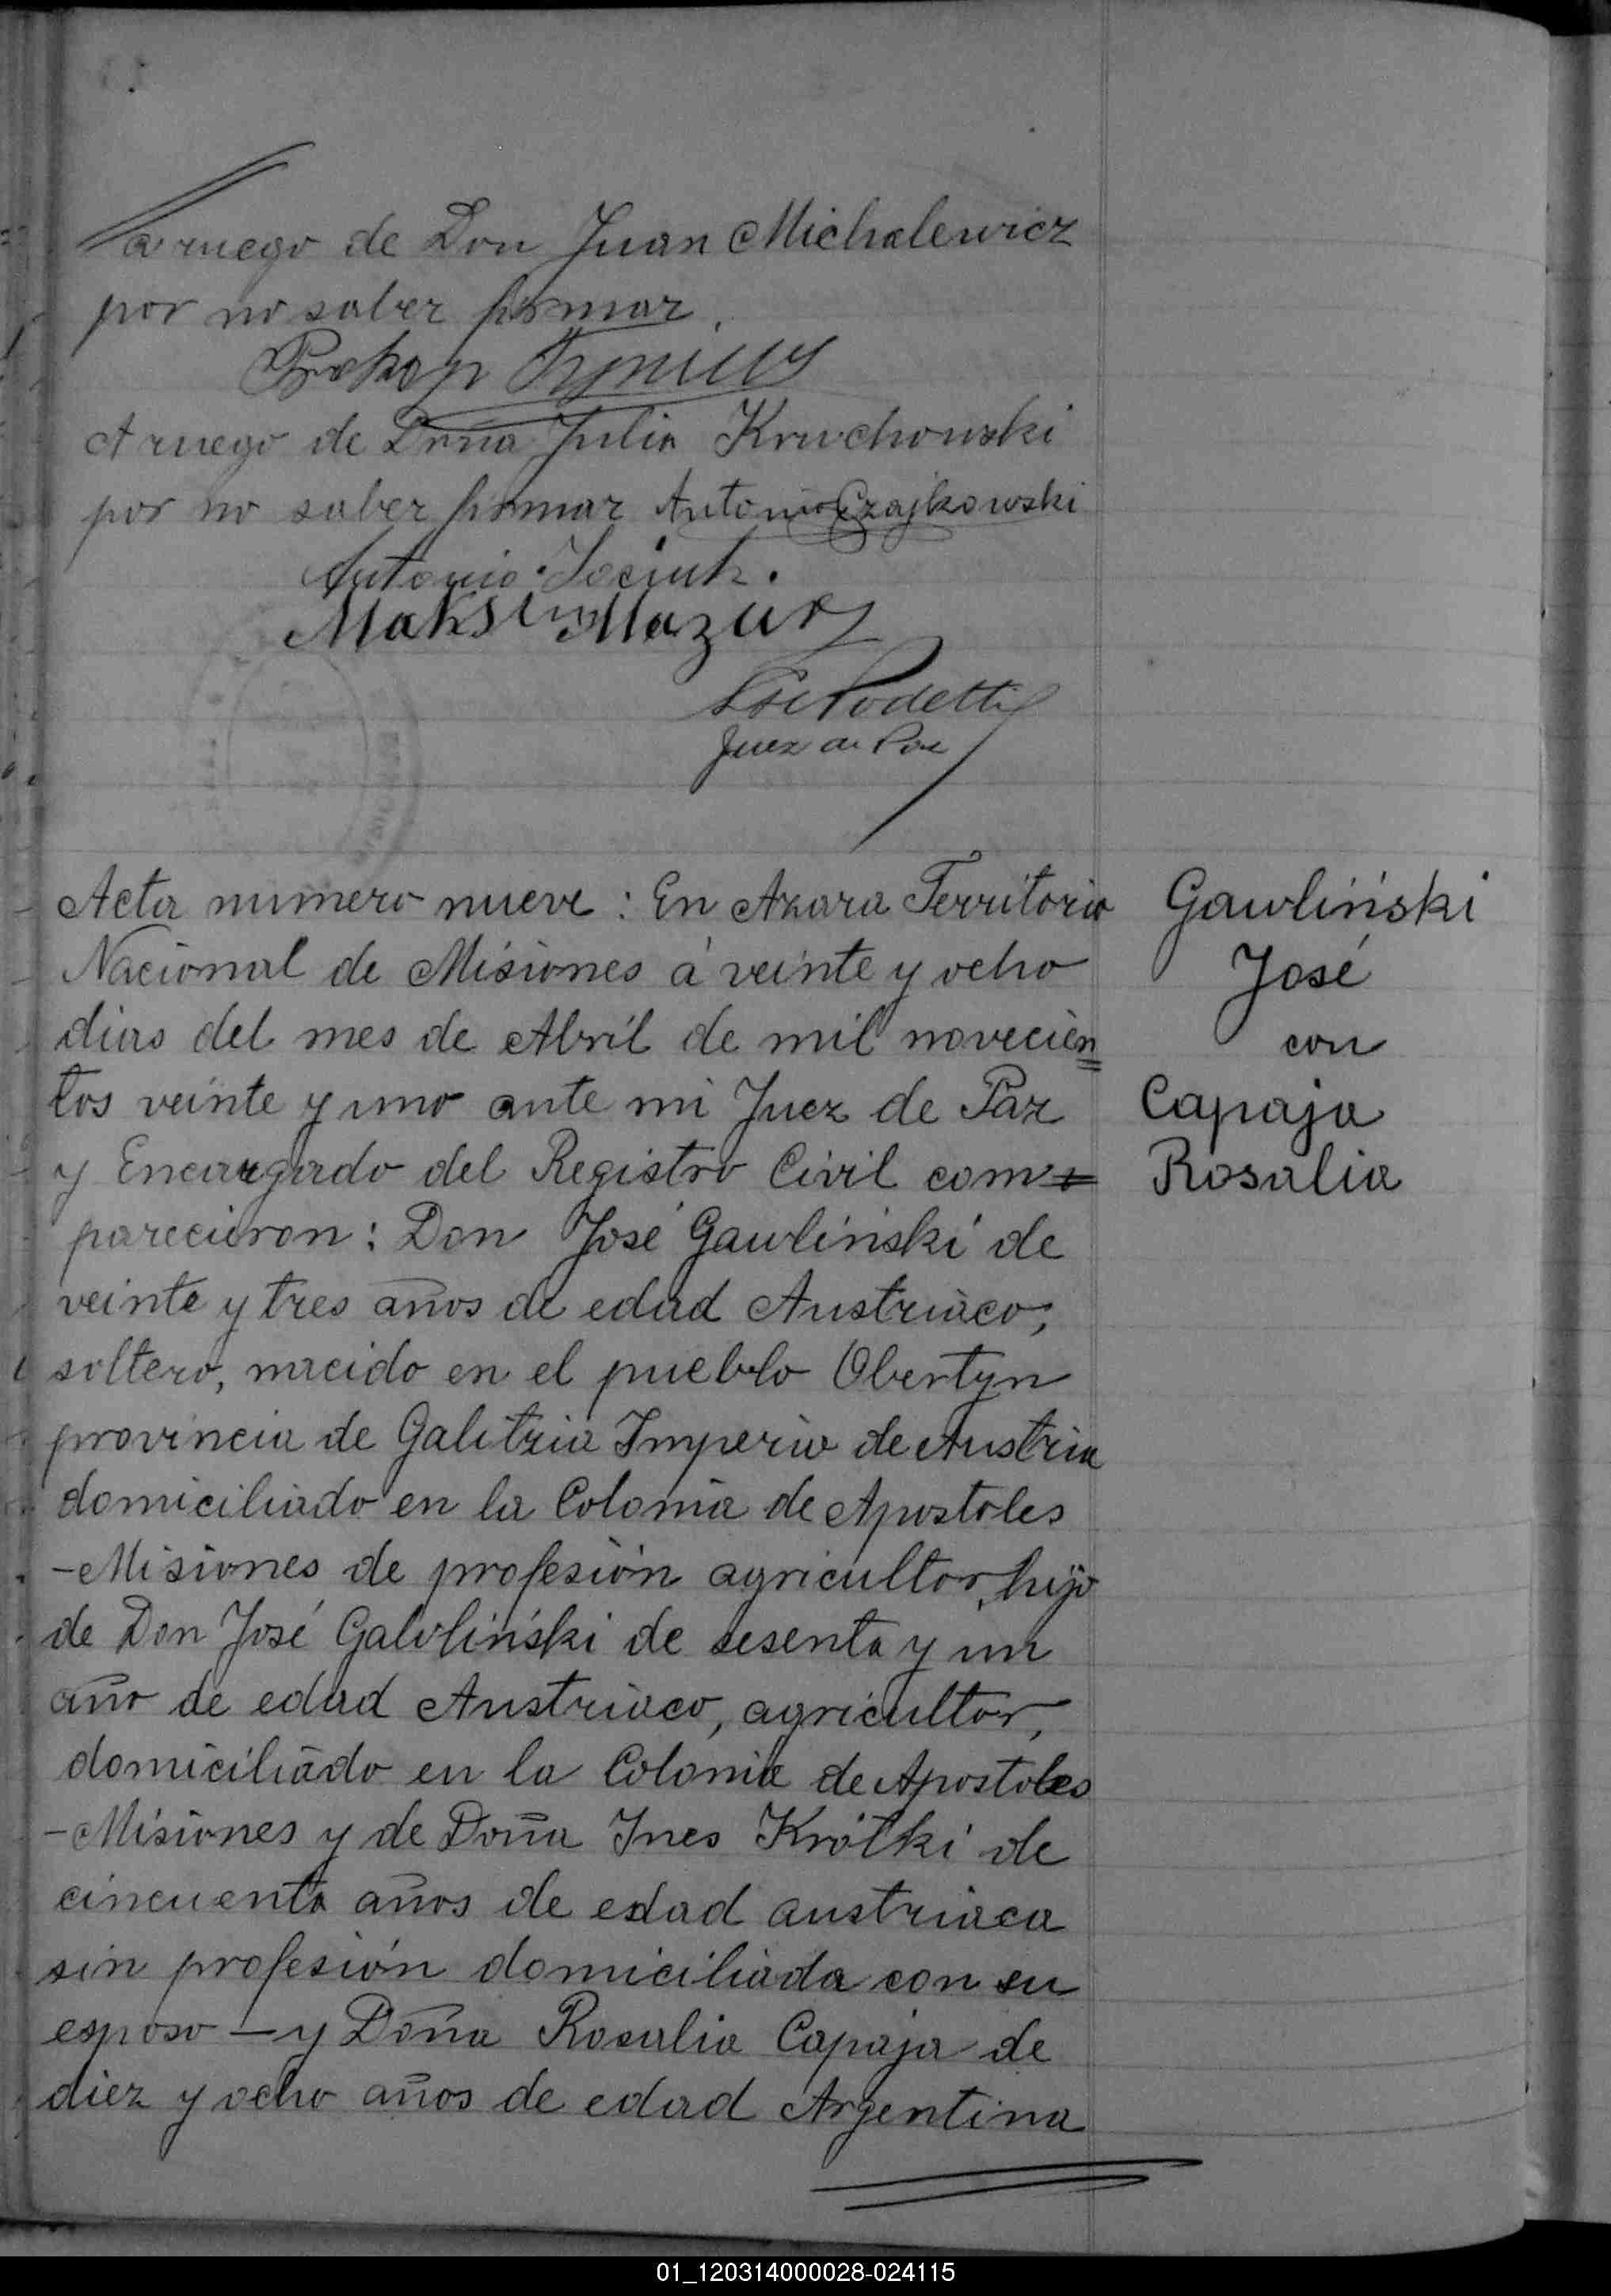 a ruego de Don Juan Michalewicz
por no saber firmar.
Prokop
A ruego de Doña Julia Kruchowski
por no saber firmar Antonio Czajkowski
Antonio
Maksim Mazur
Podetti
Juez de Paz
Acta numero nueve : En Azara Territorio
Nacional de Misiones á veinte y ocho
dias del mes de Abril de mil novecien=
tos veinte y uno ante mi Juez de Paz
y Encargado del Registro Civil com=
parecieron : Don José Gawliński de
veinte y tres años de edad Austriaco,
soltero, nacido en el pueblo Obertyn
provincia de Galitzia Imperio de Austria
domiciliado en la Colonia de Apostoles
-Misiones de profesión agricultor, hijo
de Don José Gawliński de sesenta y un
año de edad Austriaco, agricultor,
domiciliado en la Colonia de Apostoles
-Misiones y de Doña Ines Krótki de
cincuenta años de edad austriaca
sin profesión domiciliada con su
esposo — y Doña Rosalia Capaja de
diez y ocho años de edad Argentina
Gawliński
José
con
Capaja
Rosalia
01_120314000028-024115